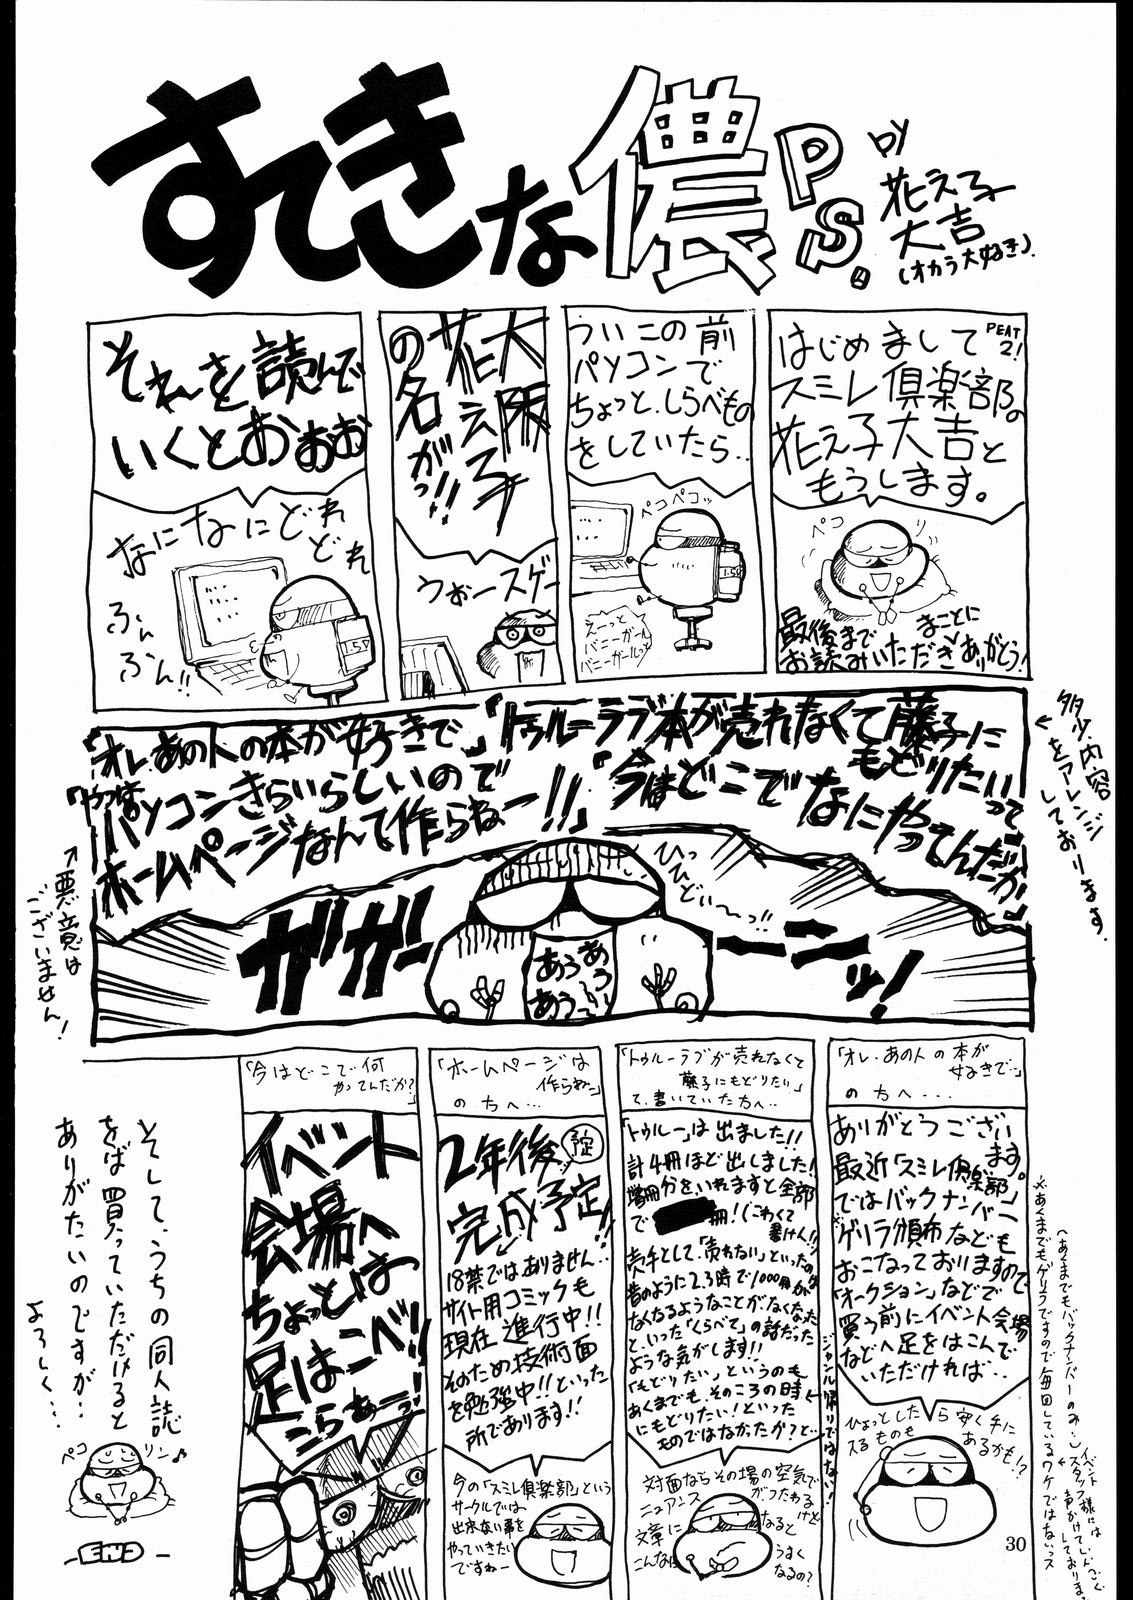 すてきな儂
P.S.
BY
花え子
大吉
(オカラ大好き).
PEAT
2!
はじめまして
スミレ倶楽部の
花え子大吉と
もうします。
ペコ
リ
最後まで
お読みいただき
まことに
ありがとう!
ういこの前
パソコンで
ちょっと、しらべもの
をしていたら..
ペコペコッ
1.5V
えーっと
バニーガール
バニーガールっと
大阪
花え子
の名
がっ!!
うぉースゲー
それを読んで
いくとおぉお
なになにどれ
どれ
1.5V
ふん
ふん!!
『トゥルーラブ本が売れなくて藤子に
もどりたいって
『今はどこでなにやってんだか』
『オレあの人の本が好きで』
『やつは
パソコンきらいらしいので
ホームページなんて作らねー!!』
ひっ
ひどぃ〜っ!!
ガガーーーンッ!
あうあう
あう〜
←多少、内容
をアレンジ
しております.
↑悪意は
ございません!
「オレ、あの人の本が
好きで…」
の方へ...
ありがとうござい
ます。
最近「スミレ倶楽部」
ではバックナンバー
※ゲリラ頒布なども
おこなっておりますので
「オークション」などで
買う前にイベント会場
などへ足をはこんで
いただければ..
ひょっとしたら安く手に
入るものも
あるかも!?
※あくまでもゲリラですので毎回しているワケではないっス
(あくまでもバックナンバーのみ…)
イベント
スタッフ様には
声かけて
しております
「トゥルーラブが売れなくて
藤子にもどりたい」
て、書いていた方へ…
「トゥルー」は出ました!!
計4冊ほど出しました!
増冊分をいれますと全部
で
冊!(こわくて
書けん!!)
売手として、「売れない」といったのは
昔のように2.3時で1000冊が
なくなるようなことがなくなった
といった「くらべて」の話だった
ような気がします!!
「もどりたい」というのも
あくまでも、そのころの時←
にもどりたい!といった
ものではなかったか?と…
ジャンル帰りではない!
対面ならその場の空気で
ニュアンス
がつたわる
けど
文章に
なると
こんな
うまく
なるの?
「ホームページは
作らね」
の方へ…
2年後
予定
完成予定!!
18禁ではありません…
サイト用コミックも
現在 進行中!!
そのため技術面
を勉強中!!といった
所であります!!
今の「スミレ倶楽部」という
サークルでは
出来ない事を
やっていきたい
ですねー
「今はどこで何
やってんだか?」
イベント
会場へ
ちょっとは
足はこべ!!
こらぁーっ!
そして、うちの同人誌
をば買っていただけると
ありがたいのですが…
よろしく…
ペコ
リン♪
-END-
30